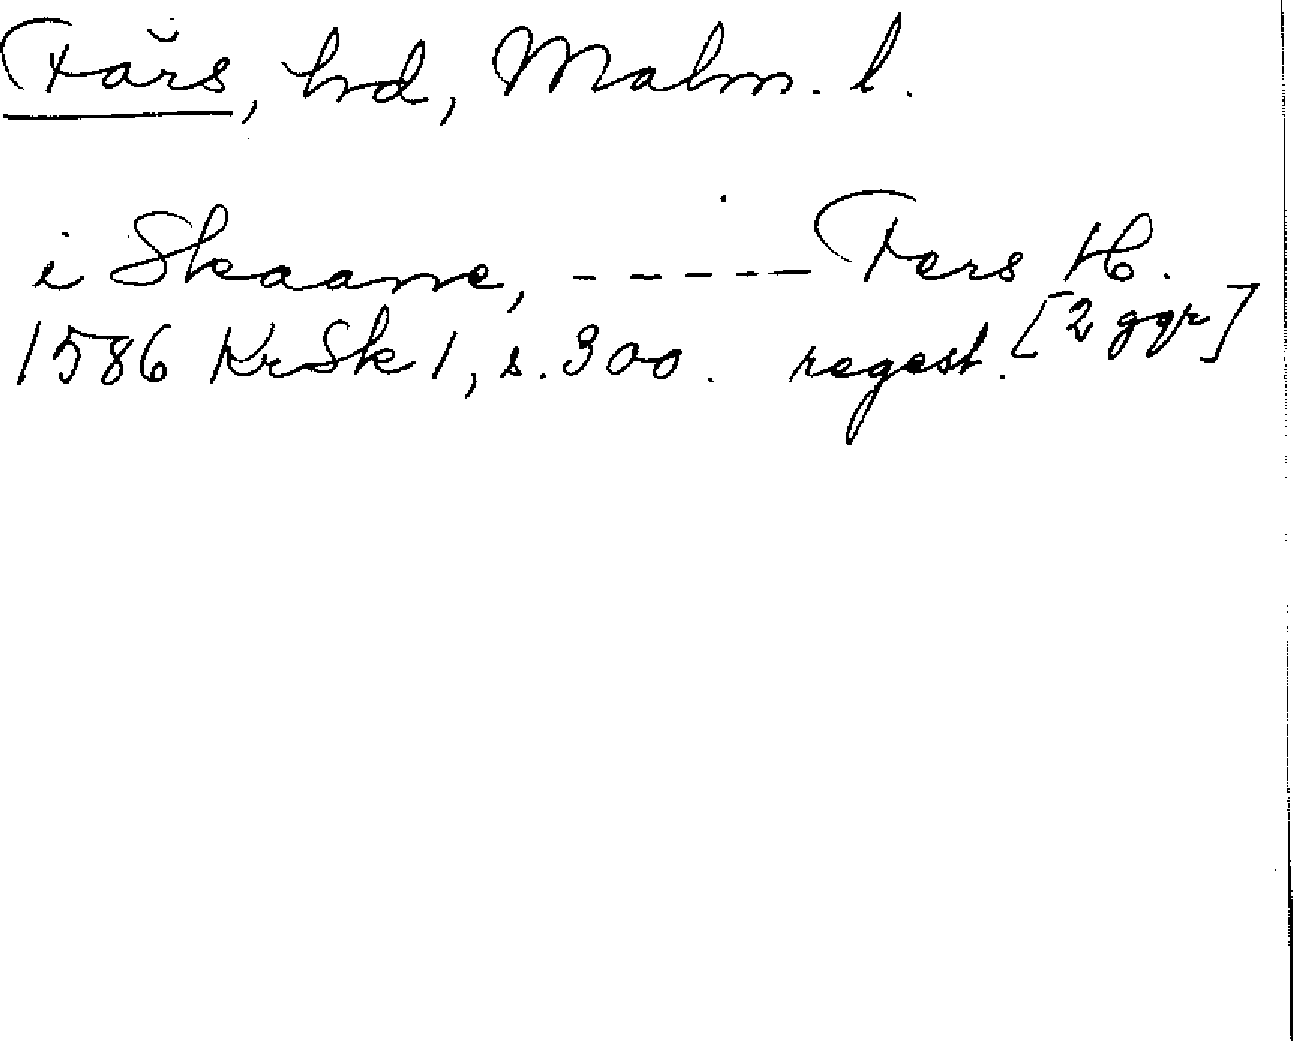 Färs, hd, Malm. l.
i Skaane, ----- Fers H.
1586 KrSk 1, s. 300. regest. [2 ggr]